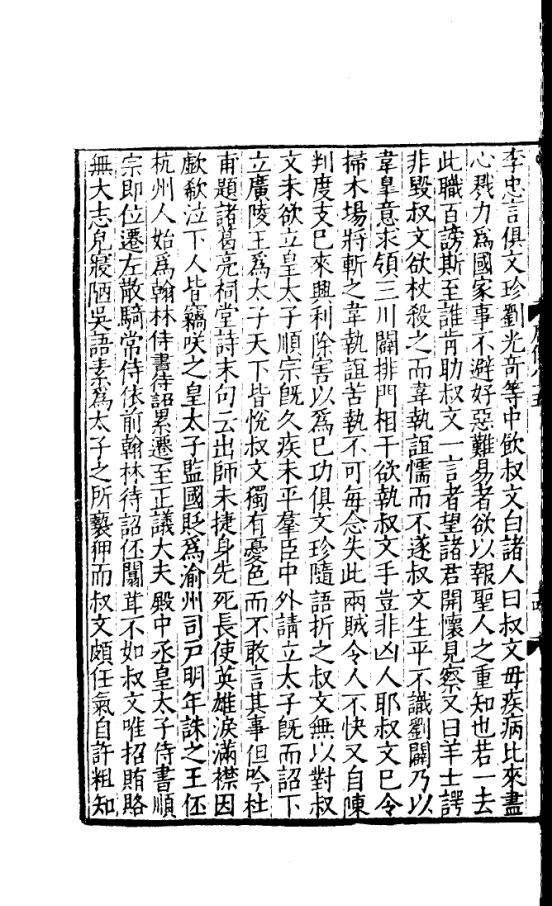 李忠言俱文珍劉光奇等中飲叔文白諸人曰叔文毋疾病比來盡
心戮力爲國家事不避好惡難易者欲以報聖人之重知也若一去
此職百謗斯至誰肯助叔文一言者望諸君開懷見察又曰羊士諤
非毀叔文欲杖殺之而韋執誼懦而不遂叔文生平不識劉闢乃以
韋皐意求領三川闢排門相干欲執叔文手豈非凶人耶叔文已令
掃木場將斬之韋執誼苦執不可每念失此兩賊令人不快又自陳
判度支已來興利除害以爲已功俱文珍隨語折之叔文無以對叔
文未欲立皇太子順宗旣久疾未平羣臣中外請立太子旣而詔下
立廣陵王爲太子天下皆悅叔文獨有憂色而不敢言其事但吟杜
甫題諸葛亮祠堂詩末句云出師未捷身先死長使英雄淚滿襟因
歔欷泣下人皆竊咲之皇太子監國貶爲渝州司戸明年誅之王伾
杭州人始爲翰林侍書待詔累遷至正議大夫殿中丞皇太子侍書順
宗即位遷左散騎常侍依前翰林待詔伾闒茸不如叔文唯招賄賂
無大志皃寢陋吳語素爲太子之所褻狎而叔文頗任氣自許粗知